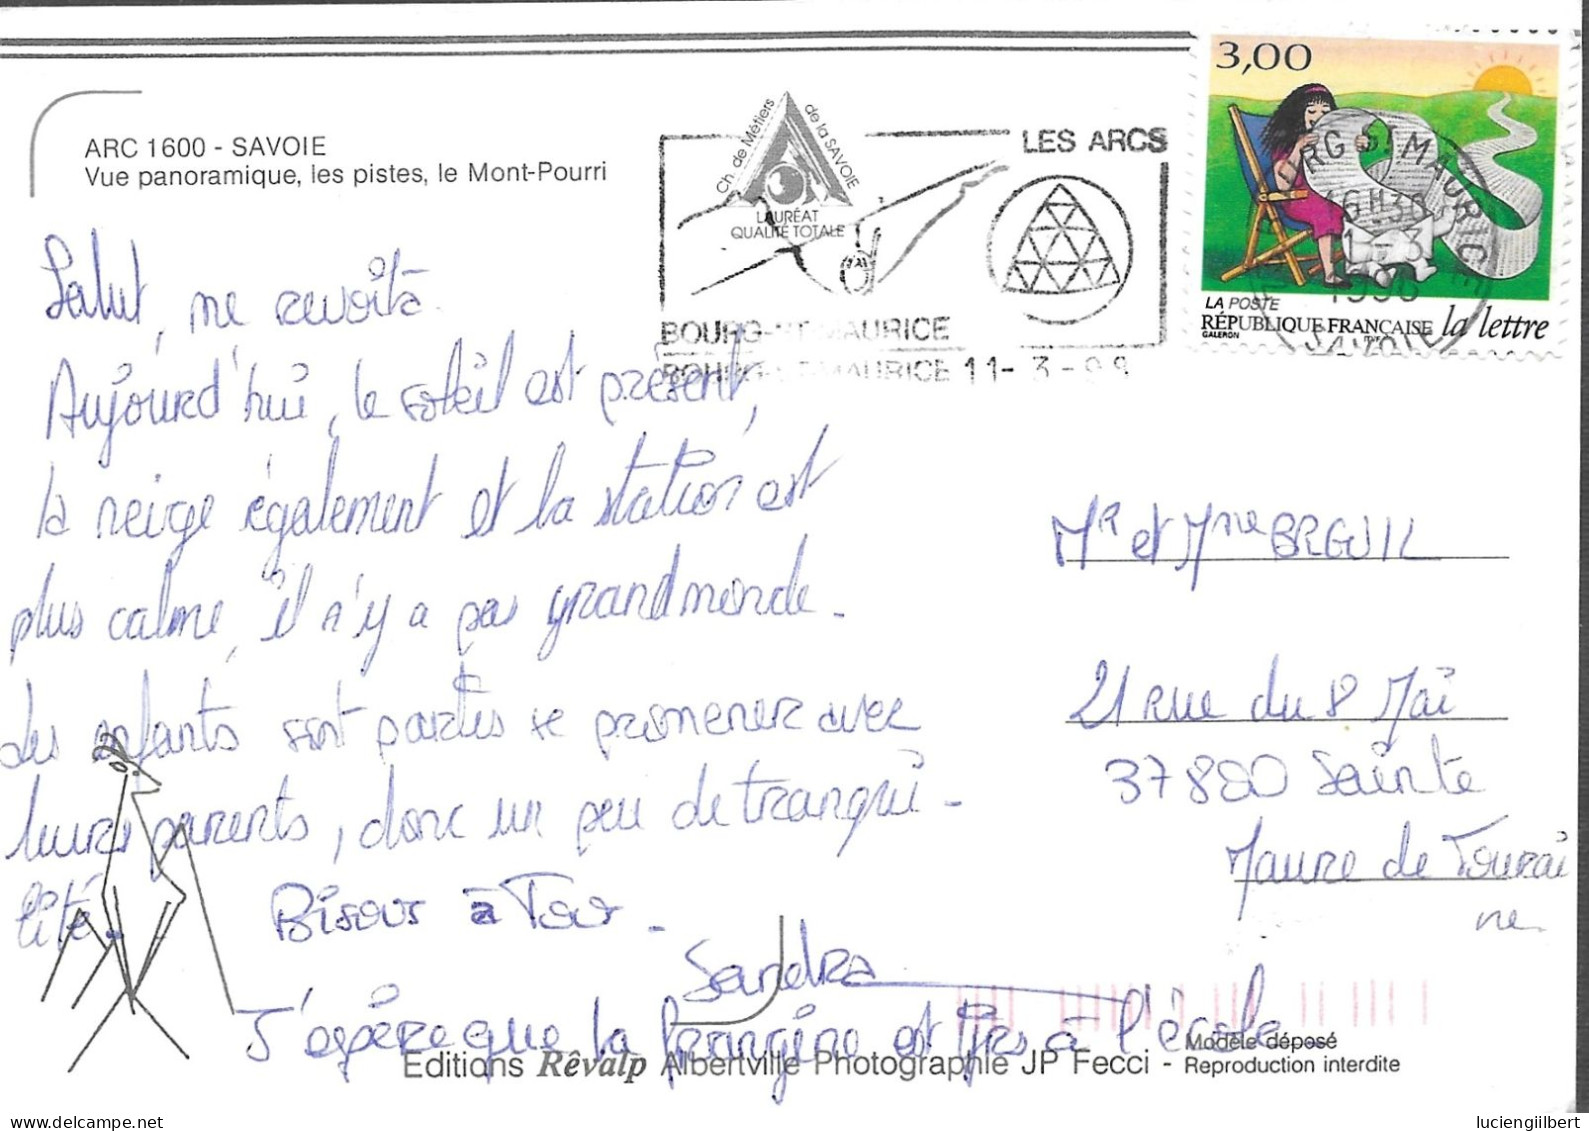 3,00
ARC 1600 - SAVOIE
Vue panoramique, les pistes, le Mont-Pourri
Ch. de Métiers de la SAVOIE
LAURÉAT
QUALITÉ TOTALE
LES ARCS
BOURG-ST-MAURICE
BOURG-ST-MAURICE 11-3-98
RG ST MAURICE
16H30
SAVOIE
LA POSTE
RÉPUBLIQUE FRANÇAISE la lettre
GALERON
Salut, me revoità.
Aujourd'hui, le soleil est présent,
la neige également et la station est
plus calme, il n'y a pas grand monde.
Les enfants sont partis se promener avec
leurs parents, donc un peu de tranqui-
lité. Bisous à Tous.
Sandra
J'espère que la frangine est tjrs à l'école
Mr et Mme BREUIL
21 Rue du 8 Mai
37800 Sainte
Maure de Tourai
ne.
Editions Rêvalp Albertville Photographie JP Fecci - Modèle déposé
Reproduction interdite
luciengilbert